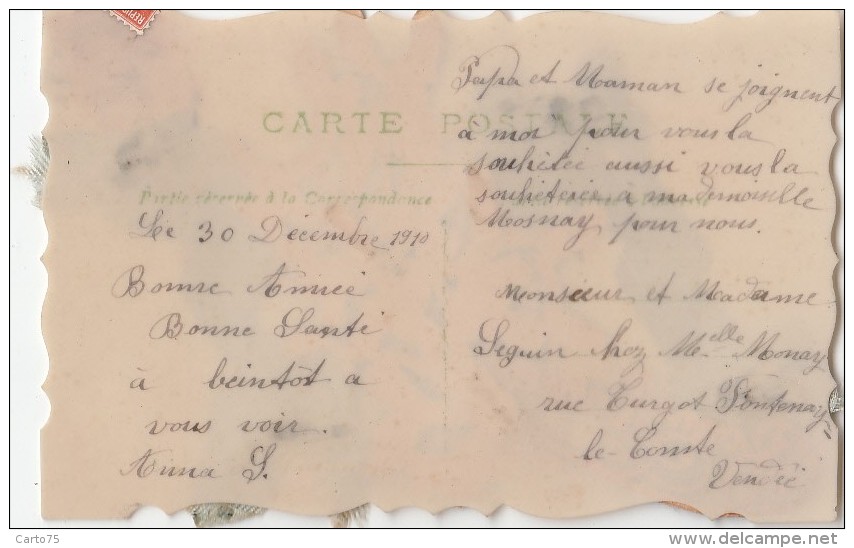 CARTE POSTALE
Partie réservée à la Correspondance
Le 30 Décembre 1910
Bonne Année
Bonne Santé
à beintôt a
vous voir.
Anna S.
Papa et Maman se joignent
a moi pour vous la
souhetée aussi vous la
souheterée a mademoiselle
Mosnay pour nous.
Monsieur et Madame
Seguin chez Melle Monay
rue Turgot Fontenay=
le-Comte
Vendée
Carto75
www.delcampe.net